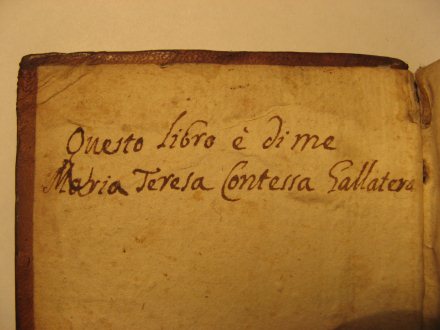 Questo libro è di me
Maria Teresa Contessa Gallatera